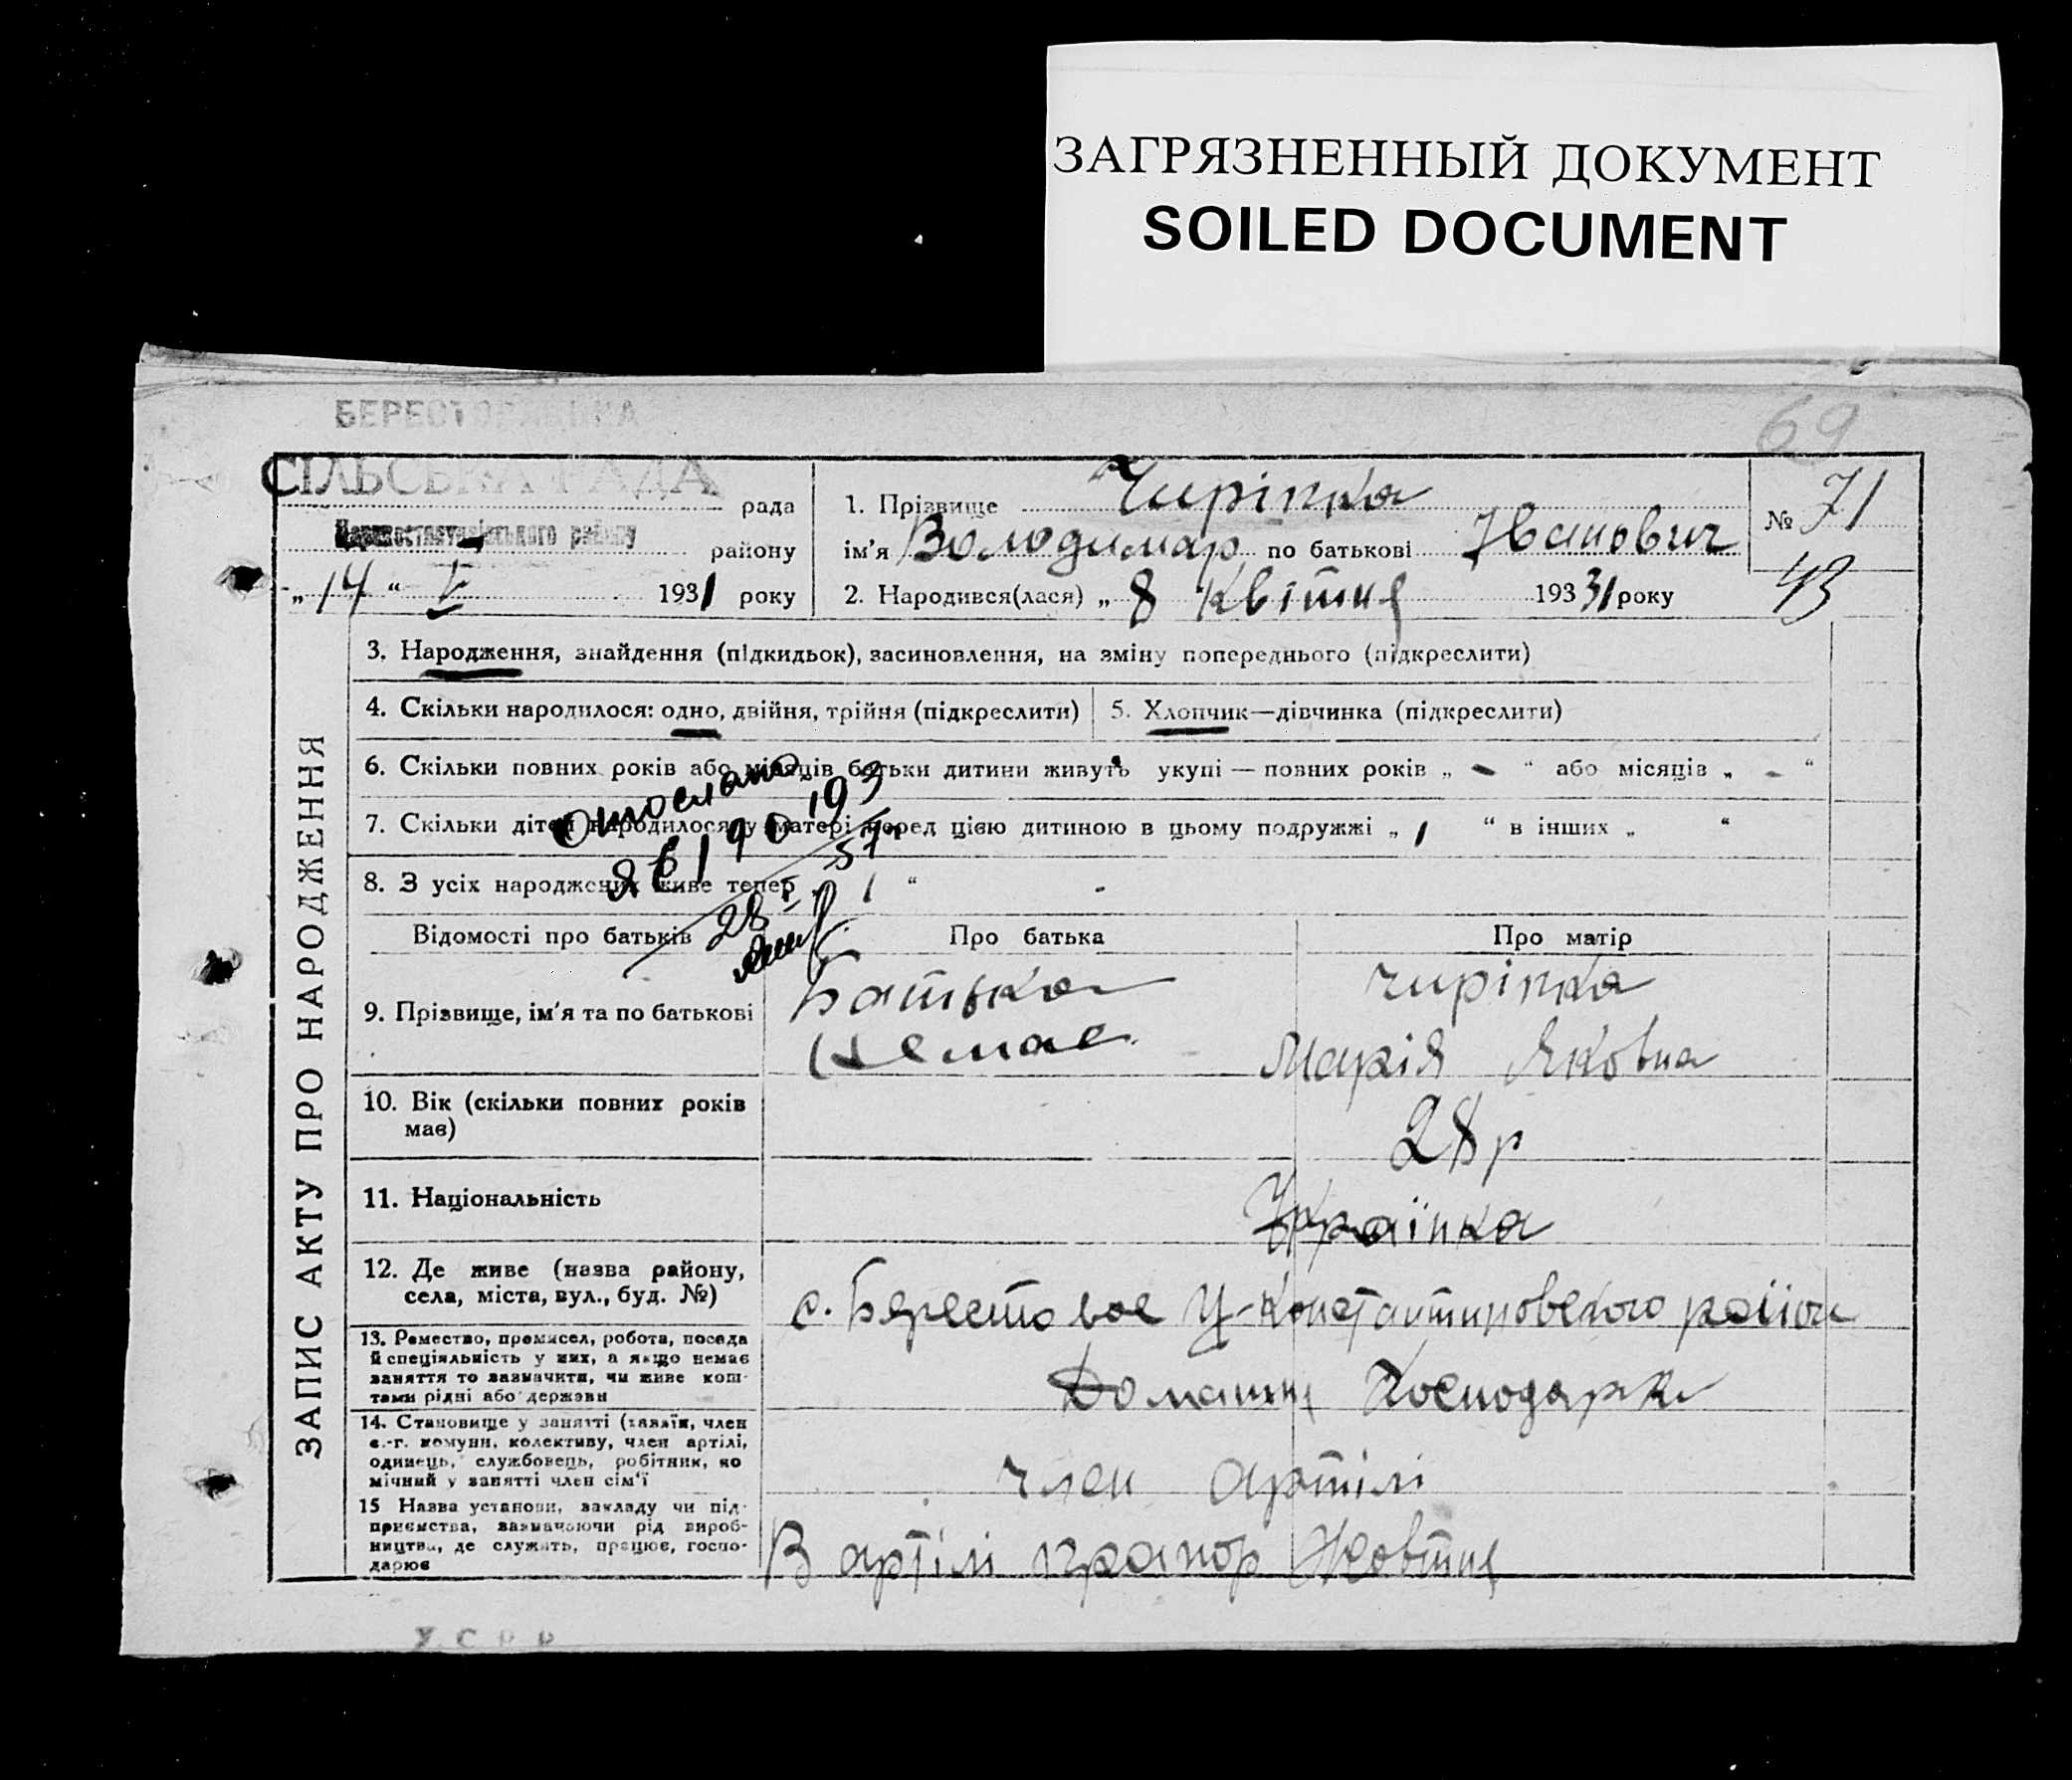 ЗАГРЯЗНЕННЫЙ ДОКУМЕНТ
SOILED DOCUMENT
69
СІЛЬСЬКА РАДА
рада
району
„ 14 “ V 1931 року
1. Прізвище Чиріпка
ім’я Володимар по батькові Іванович
2. Народився(лася) „ 8 Квітня 193 31 року
№ 71
43
ЗАПИС АКТУ ПРО НАРОДЖЕННЯ
3. Народження, знайдення (підкидьок), засиновлення, на зміну попереднього (підкреслити)
4. Скільки народилося: одно, двійня, трійня (підкреслити)
5. Хлопчик—дівчинка (підкреслити)
6. Скільки повних років або місяців батьки дитини живуть укупі — повних років „ - “ або місяців „ - “
7. Скільки дітей народилося у матері перед цією дитиною в цьому подружжі „ 1 “ в інших „ “
8. З усіх народжених живе тепер „ 1 “ -
Отослано
28 V
57
Відомості про батьків
Про батька
Про матір
9. Прізвище, ім’я та по батькові
Батька
Немає
Чиріпка
Марія Яковна
10. Вік (скільки повних років
має)
28 р
11. Національність
Українка
12. Де живе (назва району,
села, міста, вул., буд. №)
с. Берестовое Ц-Константиновского район
13. Ремество, промисел, робота, посада
й спеціяльність у них, а якщо немає
заняття то зазначити, чи живе кош-
тами рідні або держави
Домашня Господарка
14. Становище у занятті (хазяїн, член
с.-г. комуни, колективу, член артілі,
одинець, службовець, робітник, по
мічний у занятті член сім’ї
член артілі
15 Назва установи, закладу чи під-
приємства, зазначаючи рід вироб-
ництва, де служить, працює, госпо-
дарює
В артілі прапор Жовтня
У С Р Р